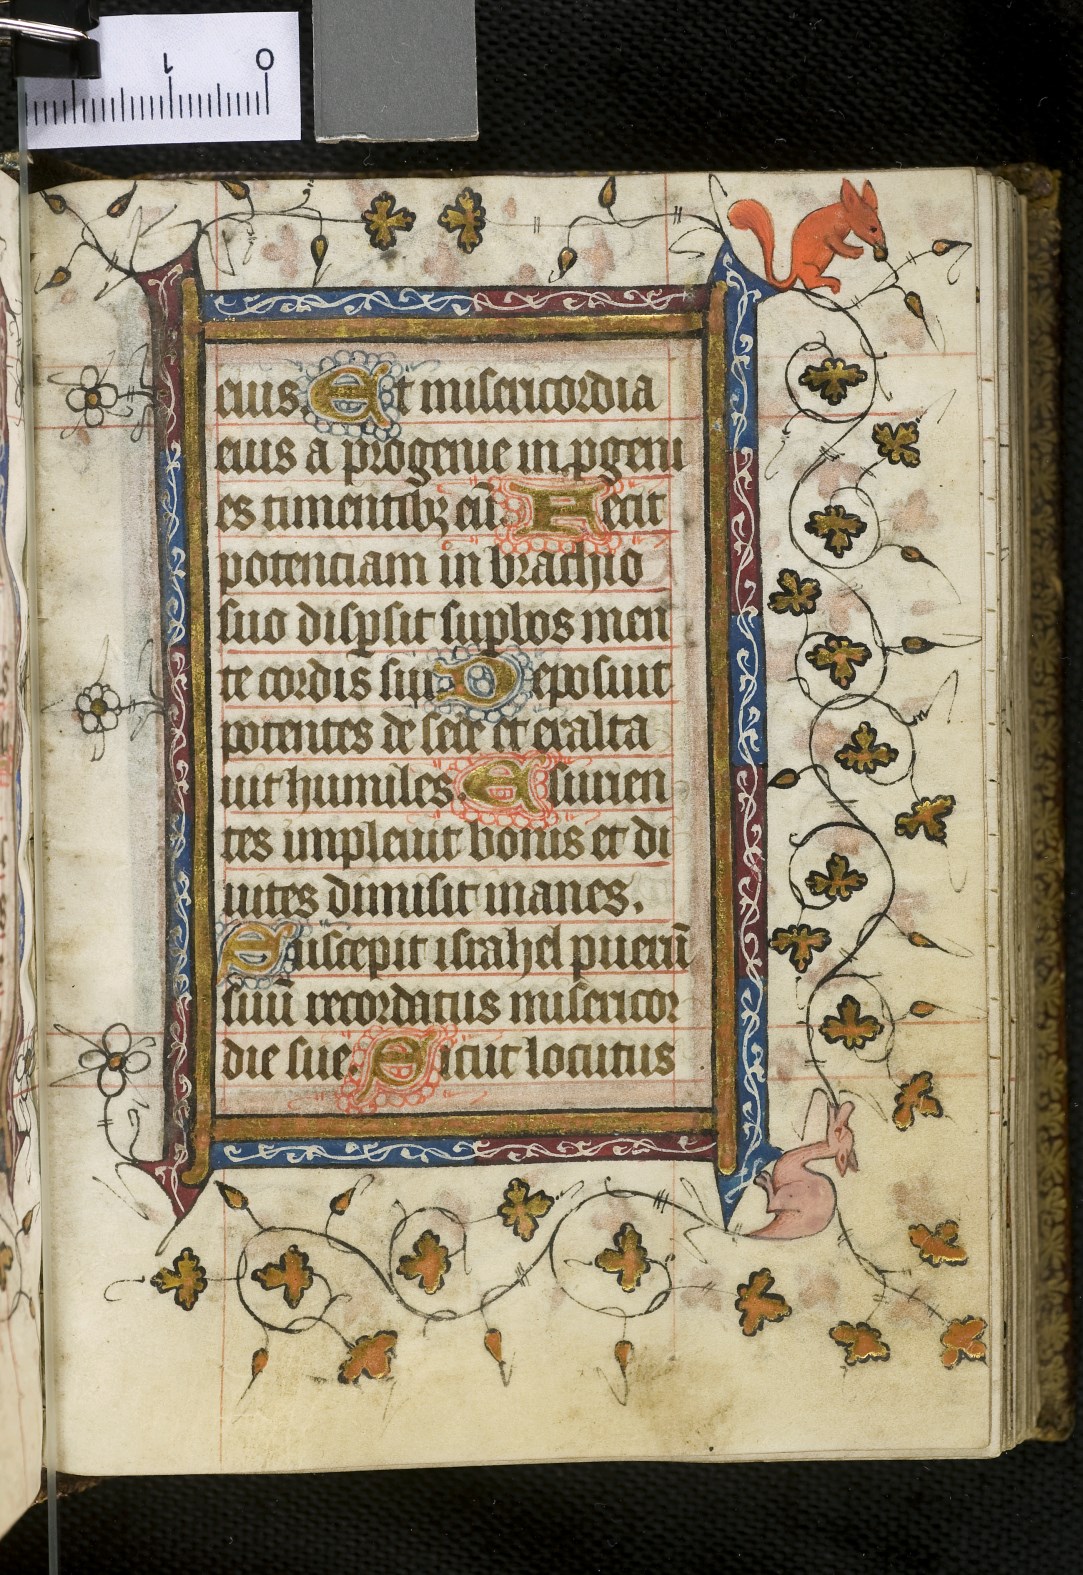 1 0
eius. Et misericordia
eius a progenie in ꝓgeni
es timentibꝫ eū. Fecit
potenciam in brachio
suo disꝑsit suꝑbos men
te cordis sui Deposuit
potentes de sede et exalta
uit humiles Esurien
tes impleuit bonis et di
uites dimisit inanes.
Suscepit israhel puerū
suū recordatus misericor
die sue. Sicut locutus